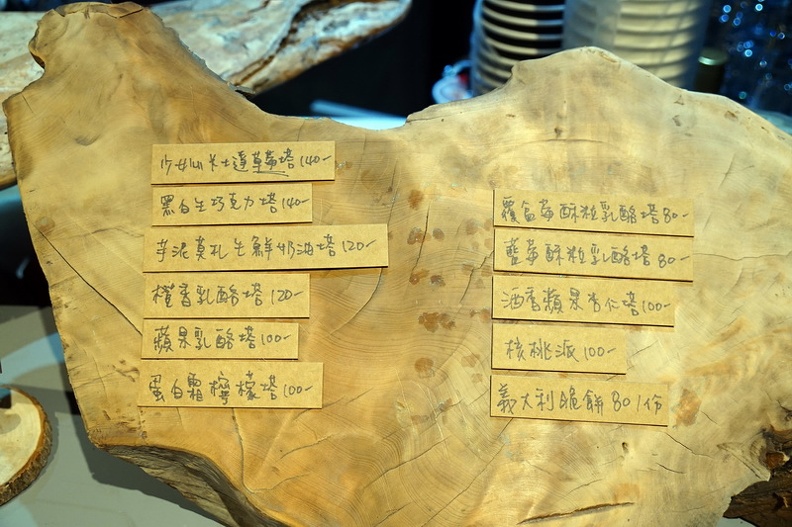 卡士達草莓塔 140-
黑白生巧克力塔 140-
芋泥莫札生鮮奶油塔 120-
橙香乳酪塔 120-
蘋果乳酪塔 100-
蛋白霜檸檬塔 100-
覆盆莓酥粒乳酪塔 80-
藍莓酥粒乳酪塔 80-
酒香蘋果杏仁塔 100-
核桃派 100-
義大利脆餅 80/份